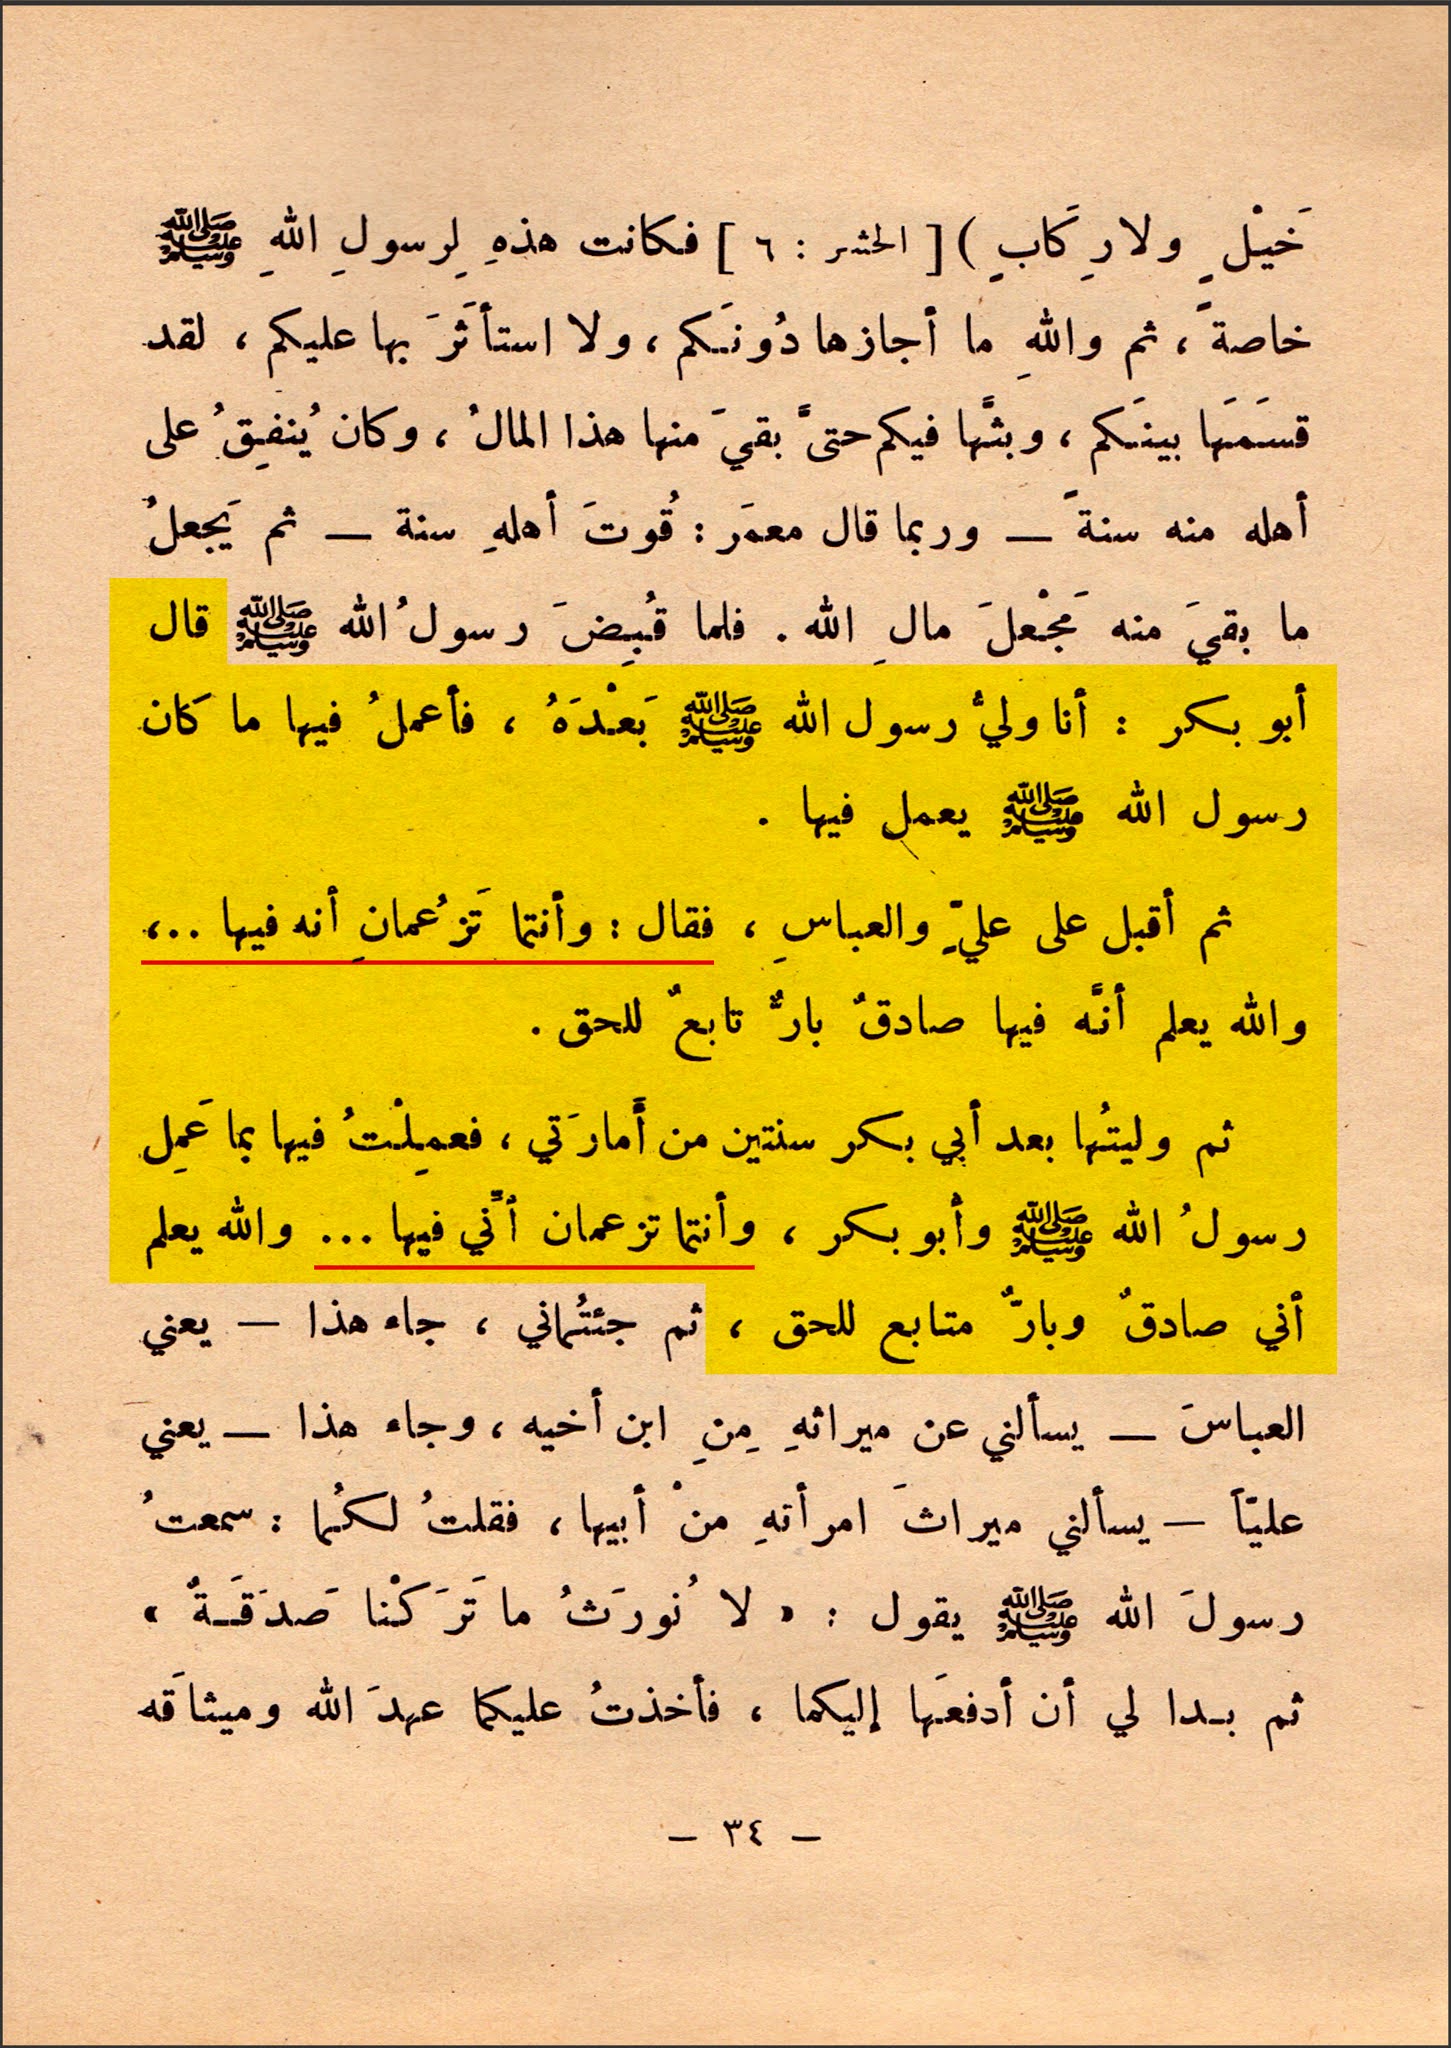 خَيْلٍ ولا رِكَابٍ ) [ الحشر : ٦ ] فكانت هذهِ لِرسولِ اللهِ ﷺ
خاصةً ، ثم واللهِ ما أجازها دُونَكم ، ولا استأثَرَ بها عليكم ، لقد
قسَمَها بينَكم ، وبثَّها فيكم حتىَّ بقيَ منها هذا المالُ ، وكان يُنفِقُ على
أهله منه سنةً — وربما قال معمَر : قُوتَ أهلهِ سنة — ثم يَجعلُ
ما بقيَ منه مَجْعلَ مالِ الله . فلما قُبِضَ رسولُ الله ﷺ قال
أبو بكر : أنا وليُّ رسول الله ﷺ بَعْدَهُ ، فأعملُ فيها ما كان
رسول الله ﷺ يعمل فيها .
ثم أقبل على عليٍّ والعباسِ ، فقال : وأنتما تَزْعُمانِ أنه فيها ..،
والله يعلم أنَّه فيها صادقٌ بارٌّ تابعٌ للحق .
ثم وليتُها بعد أبي بكر سنتين من أَمارَتي ، فعمِلْتُ فيها بما عَمِل
رسولُ الله ﷺ وأبو بكر ، وأنتما تزعمان أنِّي فيها ... والله يعلم
أني صادقٌ وبارٌّ متابع للحق ، ثم جئتُماني ، جاء هذا — يعني
العباسَ — يسألني عن ميراثهِ مِنِ ابن أخيه ، وجاء هذا — يعني
عليّاً — يسألني ميراثَ امرأتهِ منْ أبيها ، فقلتُ لكُما : سمعتُ
رسولَ الله ﷺ يقول : « لا نُورَثُ ما تَرَكْنا صَدَقَةٌ »
ثم بدا لي أن أدفعَها إليكما ، فأخذتُ عليكما عهدَ الله وميثاقَه
— ٣٤ —